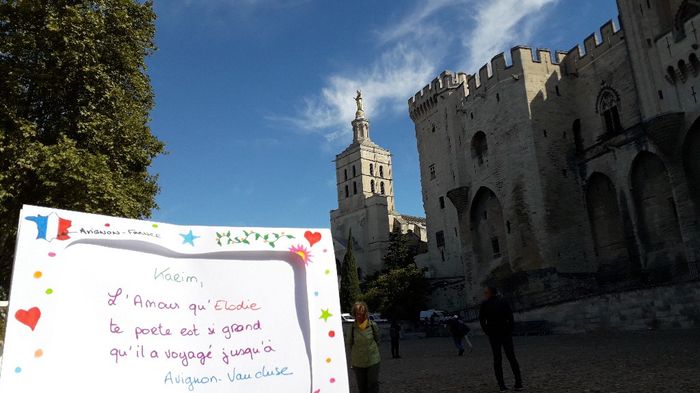 AVIGNON-FRANCE
Karim,
L'Amour qu'Elodie
te porte est si grand
qu'il a voyagé jusqu'à
Avignon-Vaucluse